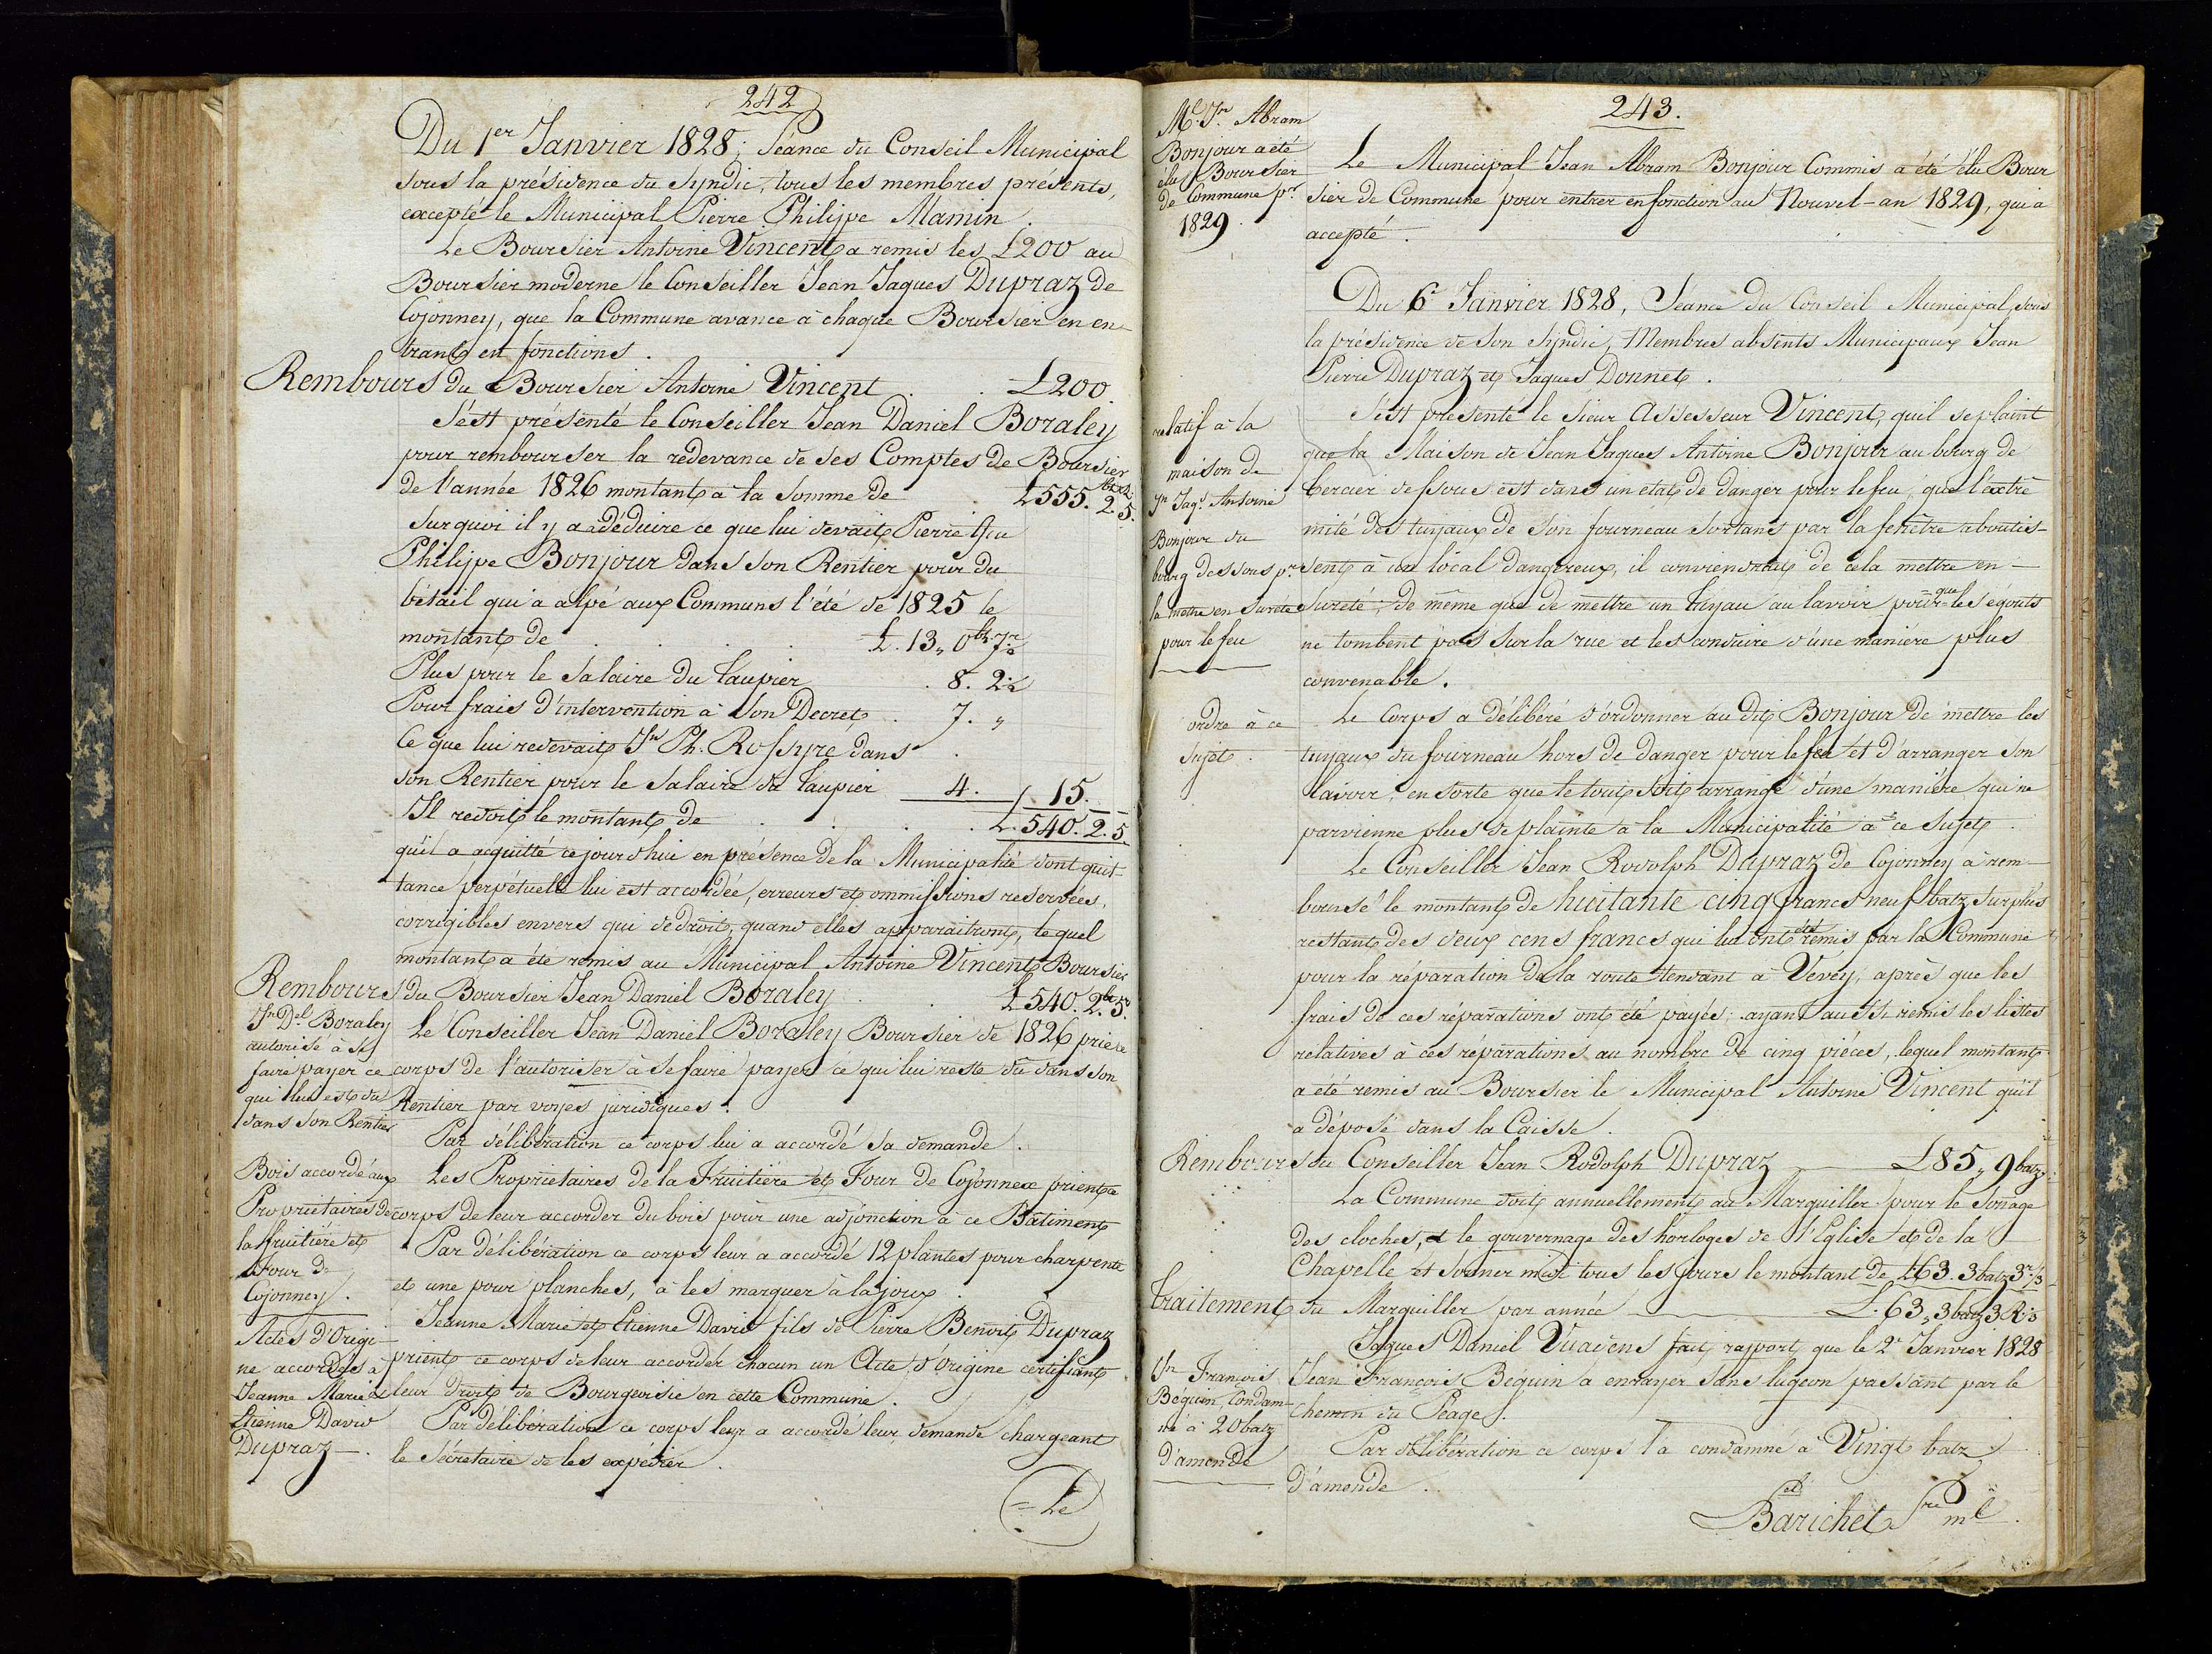 242
Du 1er Janvier 1828; Séance du Conseil Municipal
sous la présidence du Syndic, tous les membres présents,
excepté le Municipal Pierre Philippe Mamin.
Le Boursier Antoine Vincent a remis les £200 au
Boursier moderne le Conseiller Jean Jaques Dupraz de
Cojonney, que la Commune avance à chaque Boursier en en-
trant en fonctions.
Rembours du Boursier Antoine Vincent . . £200.
S'est présenté le Conseiller Jean Daniel Boraley
pour rembourser la redevance de ses Comptes de Boursier
de l'année 1826 montant à la Somme de £555. 2. 5.
Sur quoi il y a à déduire ce que lui devait Pierre feu
Philippe Bonjour dans son Rentier pour du
bétail qui a alpé aux Communs l'été de 1825 le
montant de . . . £. 13 " 0 bz 7 r
Plus pour le Salaire du taupier . 8. 2 1/2
Pour frais d'intervention à Son Decret . 7. "
Ce que lui redevait Jn Ph. Rossyre dans
son Rentier pour le Salaire du taupier 4. 15.
Il redoit le montant de . . . . £. 540. 2. 5.
qu'il a acquitté ce jourd'hui en présence de la Municipalité dont quit-
tance perpétuelle lui est accordée, erreurs et ommissions reservées,
corrigibles envers qui de droit, quand elles apparaitront, lequel
montant a été remis au Municipal Antoine Vincent Boursier
Rembours du Boursier Jean Daniel Boraley . . £540. 2. 5.
Jn Del Boraley
autorisé à se
faire payer ce
qui lui est dû
dans son Rentier
Le Conseiller Jean Daniel Boraley Boursier de 1826 prie ce
corps de l'autoriser à se faire payer ce qui lui reste dû dans son
Rentier par voyes juridiques.
Par délibération ce corps lui a accordé sa demande.
Bois accordé aux
Propriétaires de
la fruitière et
Four de
Cojonney.
Les Propriétaires de la Fruitière et Four de Cojonnex prient ce
corps de leur accorder du bois pour une adjonction à ce Bâtiment
Par délibération ce corps leur a accordé 12 plantes pour charpente
et une pour planches, à les marquer à la joux.
Actes d'Origi-
ne accordés à
Jeanne Marie et
Etienne David
Dupraz.
Jeanne Marie et Etienne David fils de Pierre Benoit Dupraz
prient ce corps de leur accorder chacun un Acte d'Origine certifiant
leur droit de Bourgeoisie en cette Commune.
Par délibération ce corps leur a accordé leur demande chargeant
le Sécretaire de les expédier.
= Le
243.
Ml Jn Abram
Bonjour a été
élu Boursier
de Commune pr
1829.
Le Municipal Jean Abram Bonjour Commis a été élu Bour
sier de Commune pour entrer en fonction au Nouvel-an 1829, qui a
accepté.
Du 6e Janvier 1828, Séance du Conseil Municipal sous
la présidence de Son Syndic, Membres absents Municipaux Jean
Pierre Dupraz et Jaques Donnet.
relatif à la
maison de
Jn Jaqs Antoine
Bonjour du
bourg dessous pr
la mettre en Sureté
pour le feu
S'est présenté le Sieur Assesseur Vincent, qu'il se plaint
que la Maison de Jean Jaques Antoine Bonjour au bourg de
Cercier dessous est dans un état de danger pour le feu, que l'extré
mité des tuyaux de Son fourneau Sortans par la fenêtre aboutis-
sent à un local dangereux, il conviendrait de cela mettre en
Sureté; de même que de mettre un tuyau au lavoir pour que les égouts
ne tombent pas Sur la rue et les conduire d'une maniere plus
convenable.
ordre à ce
Sujet.
Le Corps a délibéré d'ordonner au dit Bonjour de mettre les
tuyaux du fourneau hors de danger pour le feu et d'arranger Son
lavoir, en sorte que le tout soit arrangé d'une manière qui ne
parvienne plus de plainte à la Municipalité à ce Sujet.
Le Conseiller Jean Rodolph Dupraz de Cojonney à rem-
boursé le montant de huitante cinq francs neuf batz Surplus
restant des deux cens francs qui lui ont été remis par la Commune
pour la réparation de la route tendant à Vevey, après que les
frais de ces réparations ont été payés; ayant aussi remis les listes
relatives à ces réparations au nombre de cinq pièces, lequel montant
a été remis au Boursier le Municipal Antoine Vincent qu'il
a déposé dans la Caisse.
Rembours du Conseiller Jean Rodolph Dupraz £85 " 9 batz.
La Commune doit annuellement au Marguiller pour le Sonnage
des cloches, et le gouvernage des horloges de l'Eglise et de la
Chapelle et sonner midi tous les jours le montant de £63. 3 batz 3 r 1/3
Traitement du Marguiller par année £. 63 " 3 batz 3 R 1/3
Jn François
Béguin, Condam-
né à 20 batz
d'amende
Jaques Daniel Vuadens fait rapport, que le 2e Janvier 1828
Jean François Béguin a enrayer Sans lugeon passant par le
Chemin du Péage.
Par délibération ce corps l'a condamné à Vingt batz
d'amende.
Barichet Sre ml.